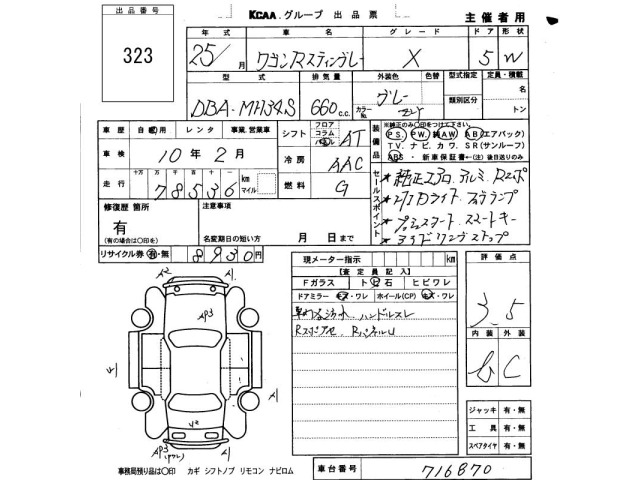 出品番号
323
KCAA グループ 出品票
主催者用
年式 車名 グレード ドア 形状
25/月 ワゴンRスティングレー X 5 W
型式 排気量 外装色 色替 型式指定 定員・積載
DBA-MH34S 660c.c. グレー カラーNo. ZLY 類別区分 名 トン
車歴 自家用 レンタ 事業、営業車
シフト フロア コラム AT
車検 10年2月
冷房 AAC
走行 十万 万 千 百 十 78536 km マイル
燃料 G
装備品
※純正のみ○印をつけて下さい。
P.S. P.W. 純AW A.B(エアバック)
T.V. ナビ. カワ. S.R(サンルーフ)
ABS・新車保証書←(注)後日送りのみ
セールスポイント
修復歴 箇所
有
(有の場合は○印を)
注意事項
名変期日の短い方 月 日まで
★プッシュスタート スマートキー
★アイドリングストップ
リサイクル券 有・無 8930円
現メーター指示 km
【査定員記入】
Fガラス トビ石 ヒビワレ
ドアミラー キズ・ワレ ホイール(CP) キズ・ワレ
ハンドルスレ
評価点
3.5
内装 外装
b C
ジャッキ 有・無
工具 有・無
スペアタイヤ 有・無
A2
A1
AP3
A1
A1
AP3
A1
事務局預り品は○印 カギ シフトノブ リモコン ナビロム
車台番号 716870